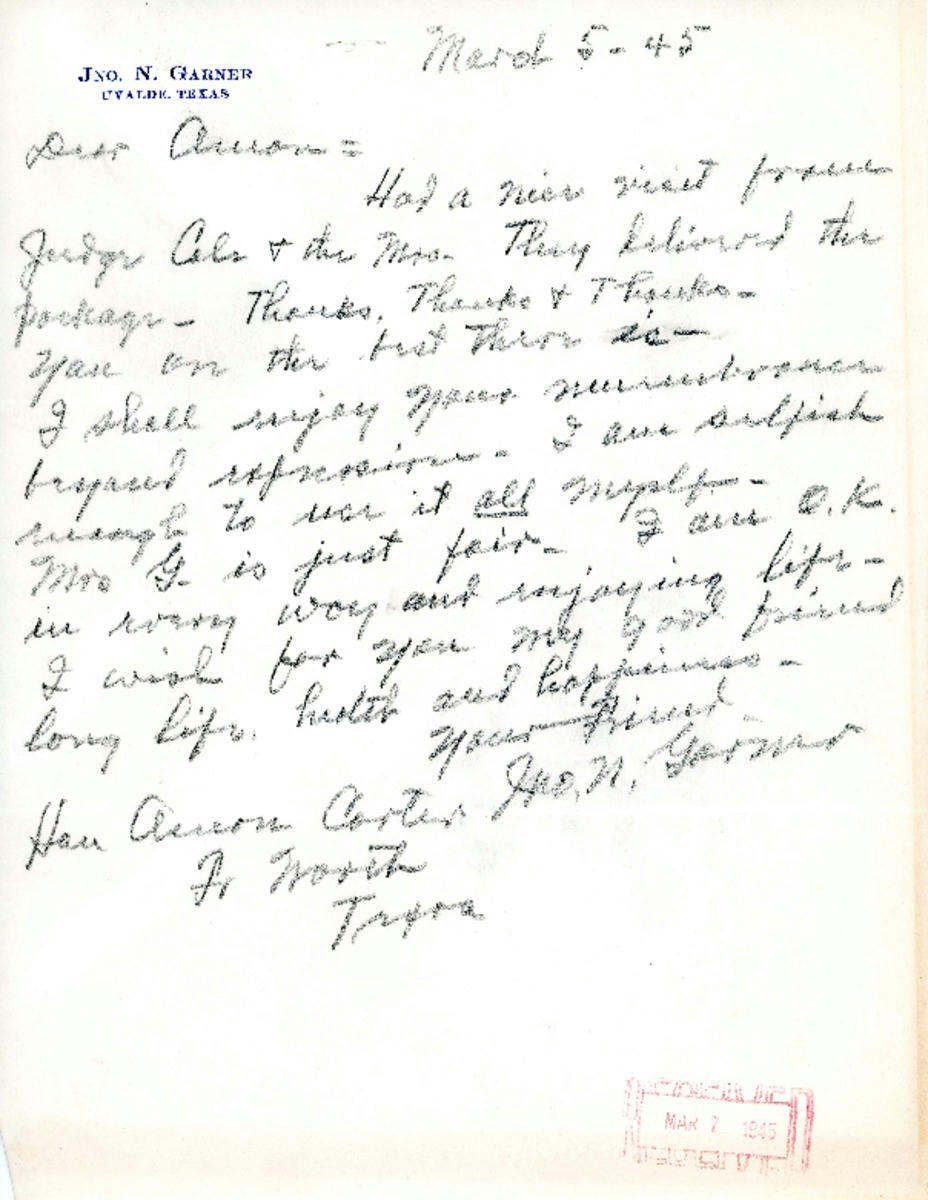 March 5 - 45
JNO. N. GARNER
UVALDE, TEXAS
Dear Amon =
Had a nice visit from
Judge & the Mrs. They delivered the
package - Thanks, Thanks & Thanks -
You are the best there is -
I shall enjoy your remembrance
beyond expression - I am selfish
enough to use it all myself -
Mrs G. is just fair - I am O.K.
in every way and enjoying life -
I wish for you my good friend
long life, health and happiness -
Your Friend
Jno. N. Garner
Hon Amon Carter
Ft Worth
Texas
MAR 7 1945